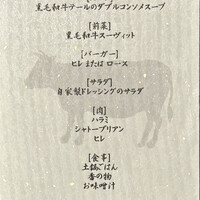 黒毛和牛テールのダブルコンソメスープ
[前菜]
黒毛和牛スーヴィット
[バーガー]
ヒレ または ロース
[サラダ]
自家製ドレッシングのサラダ
[肉]
ハラミ
シャトーブリアン
ヒレ
[食事]
土鍋ごはん
香の物
お味噌汁